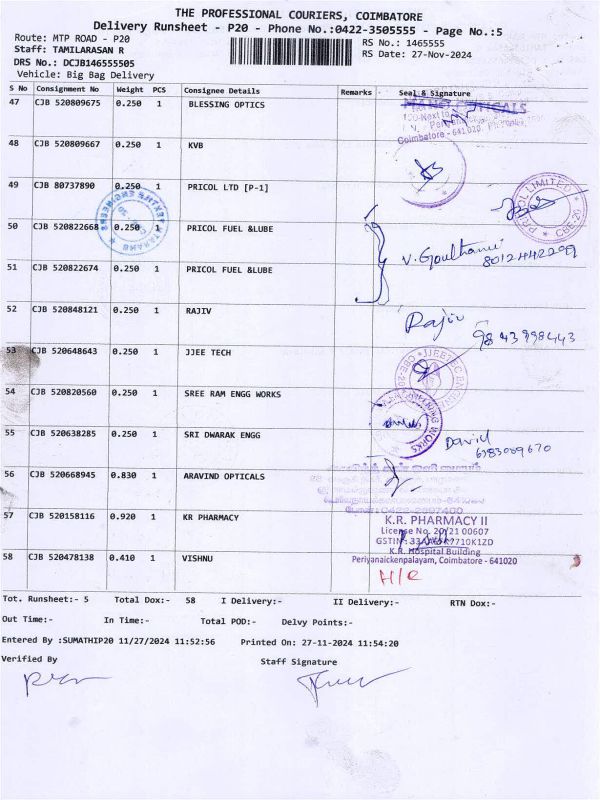 THE PROFESSIONAL COURIERS, COIMBATORE
Delivery Runsheet - P20 - Phone No.:0422-3505555 - Page No.:5
Route: MTP ROAD - P20
RS No.: 1465555
Staff: TAMILARASAN R
RS Date: 27-Nov-2024
DRS No.: DCJB146555505
Vehicle: Big Bag Delivery
S No Consignment No Weight PCS Consignee Details Remarks - Seal & Signature
47 CJB 520809675 0.250 1 BLESSING OPTICS
Coimbatore - 641020.
48 CJB 520809667 0.250 1 KVB
49 CJB 80737890 0.250 1 PRICOL LTD [P-1]
PRICOL LIMITED CBE-20
50 CJB 520822668 0.250 1 PRICOL FUEL &LUBE
V. Goulthami
51 CJB 520822674 0.250 1 PRICOL FUEL &LUBE
52 CJB 520848121 0.250 1 RAJIV
Rajiv
9843998443
53 CJB 520648643 0.250 1 JJEE TECH
54 CJB 520820560 0.250 1 SREE RAM ENGG WORKS
55 CJB 520638285 0.250 1 SRI DWARAK ENGG
David
6383089670
56 CJB 520668945 0.830 1 ARAVIND OPTICALS
0422-2897400
57 CJB 520158116 0.920 1 KR PHARMACY
K.R. PHARMACY II
License No. 20/21 00607
K.R. Hospital Building
Periyanaickenpalayam, Coimbatore - 641020
58 CJB 520478138 0.410 1 VISHNU
H/R
Tot. Runsheet:- 5 Total Dox:- 58 I Delivery:- II Delivery:- RTN Dox:-
Out Time:- In Time:- Total POD:- Delvy Points:-
Entered By :SUMATHIP20 11/27/2024 11:52:56 Printed On: 27-11-2024 11:54:20
Verified By Staff Signature